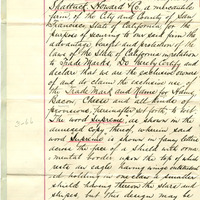 Shattuck Howard & Co. a mercantile
firm of the City and County of San
Francisco State of California for the
purpose of securing to our said firm the
advantage, benefit and protection of the
laws of the State of California in relation
to Trade Marks, Do Hereby Certify and
declare that we are the exclusive owners
of and do claim the exclusive use of
the Trade Mark and Name for Hams,
Bacon, Cheese and all kinds of
Provisions, hereinafter set forth to wit
The word Supreme, as shown in the
annexed copy thereof, wherein said
word Supreme is shown in fancy letters
across the face of a shield with orna-
mental border upon the top of which
rests an eagle having wings extended
and holding in one claw a smaller
shield having thereon the stars and
stripes, but this design may be